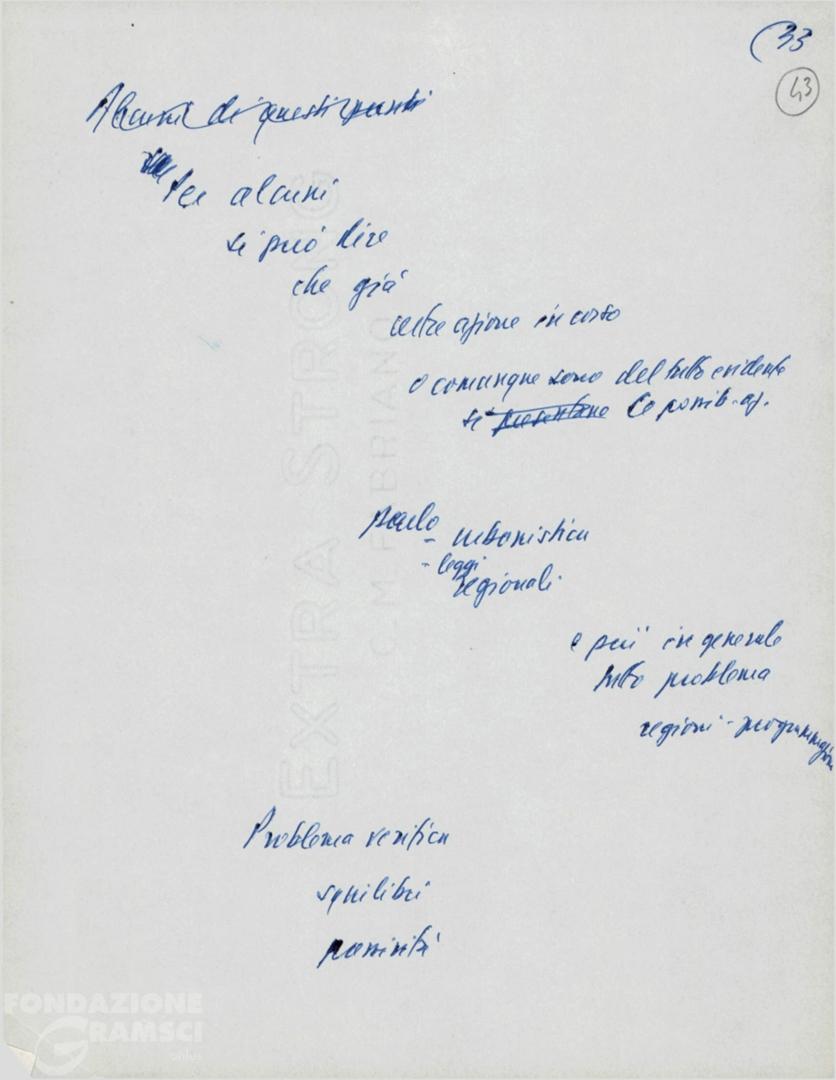 (33
43
Alcuni di questi punti
Per alcuni
si può dire
che già
oltre azione in corso
o comunque sono del tutto evidente
si presentano le possib. az.
parlo
- urbanistica
- leggi
regionali
e più in generale
tutto problema
regioni - programmazione
Problema verifica
squilibri
passività
EXTRA STRONG
C.M. FABRIANO
FONDAZIONE
GRAMSCI
onlus